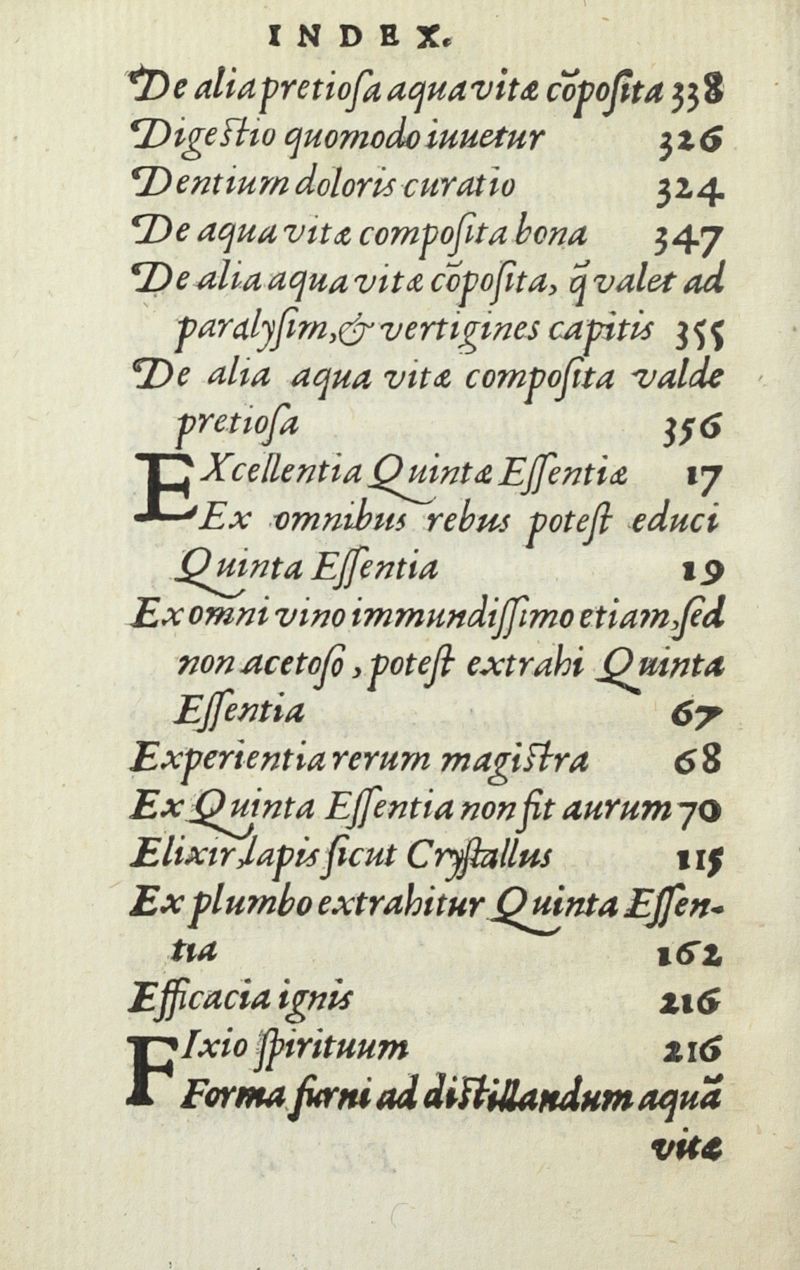 INDEX.
De alia pretiosa aqua vitæ cõposita 338
Digestio quomodo iuuetur 326
Dentium doloris curatio 324
De aqua vitæ composita bona 347
De alia aqua vitæ cõposita, q̃ valet ad
paralysim, & vertigines capitis 355
De alia aqua vitæ composita valde
pretiosa 356
EXcellentia Quintæ Essentiæ 17
Ex omnibus rebus potest educi
Quinta Essentia 19
Ex omni vino immundissimo etiam, sed
non acetoso, potest extrahi Quinta
Essentia 67
Experientia rerum magistra 68
Ex Quinta Essentia non fit aurum 70
Elixir, lapis sicut Crystallus 115
Ex plumbo extrahitur Quinta Essen-
tia 162
Efficacia ignis 216
FIxio spirituum 216
Forma furni ad distillandum aquã
vitæ